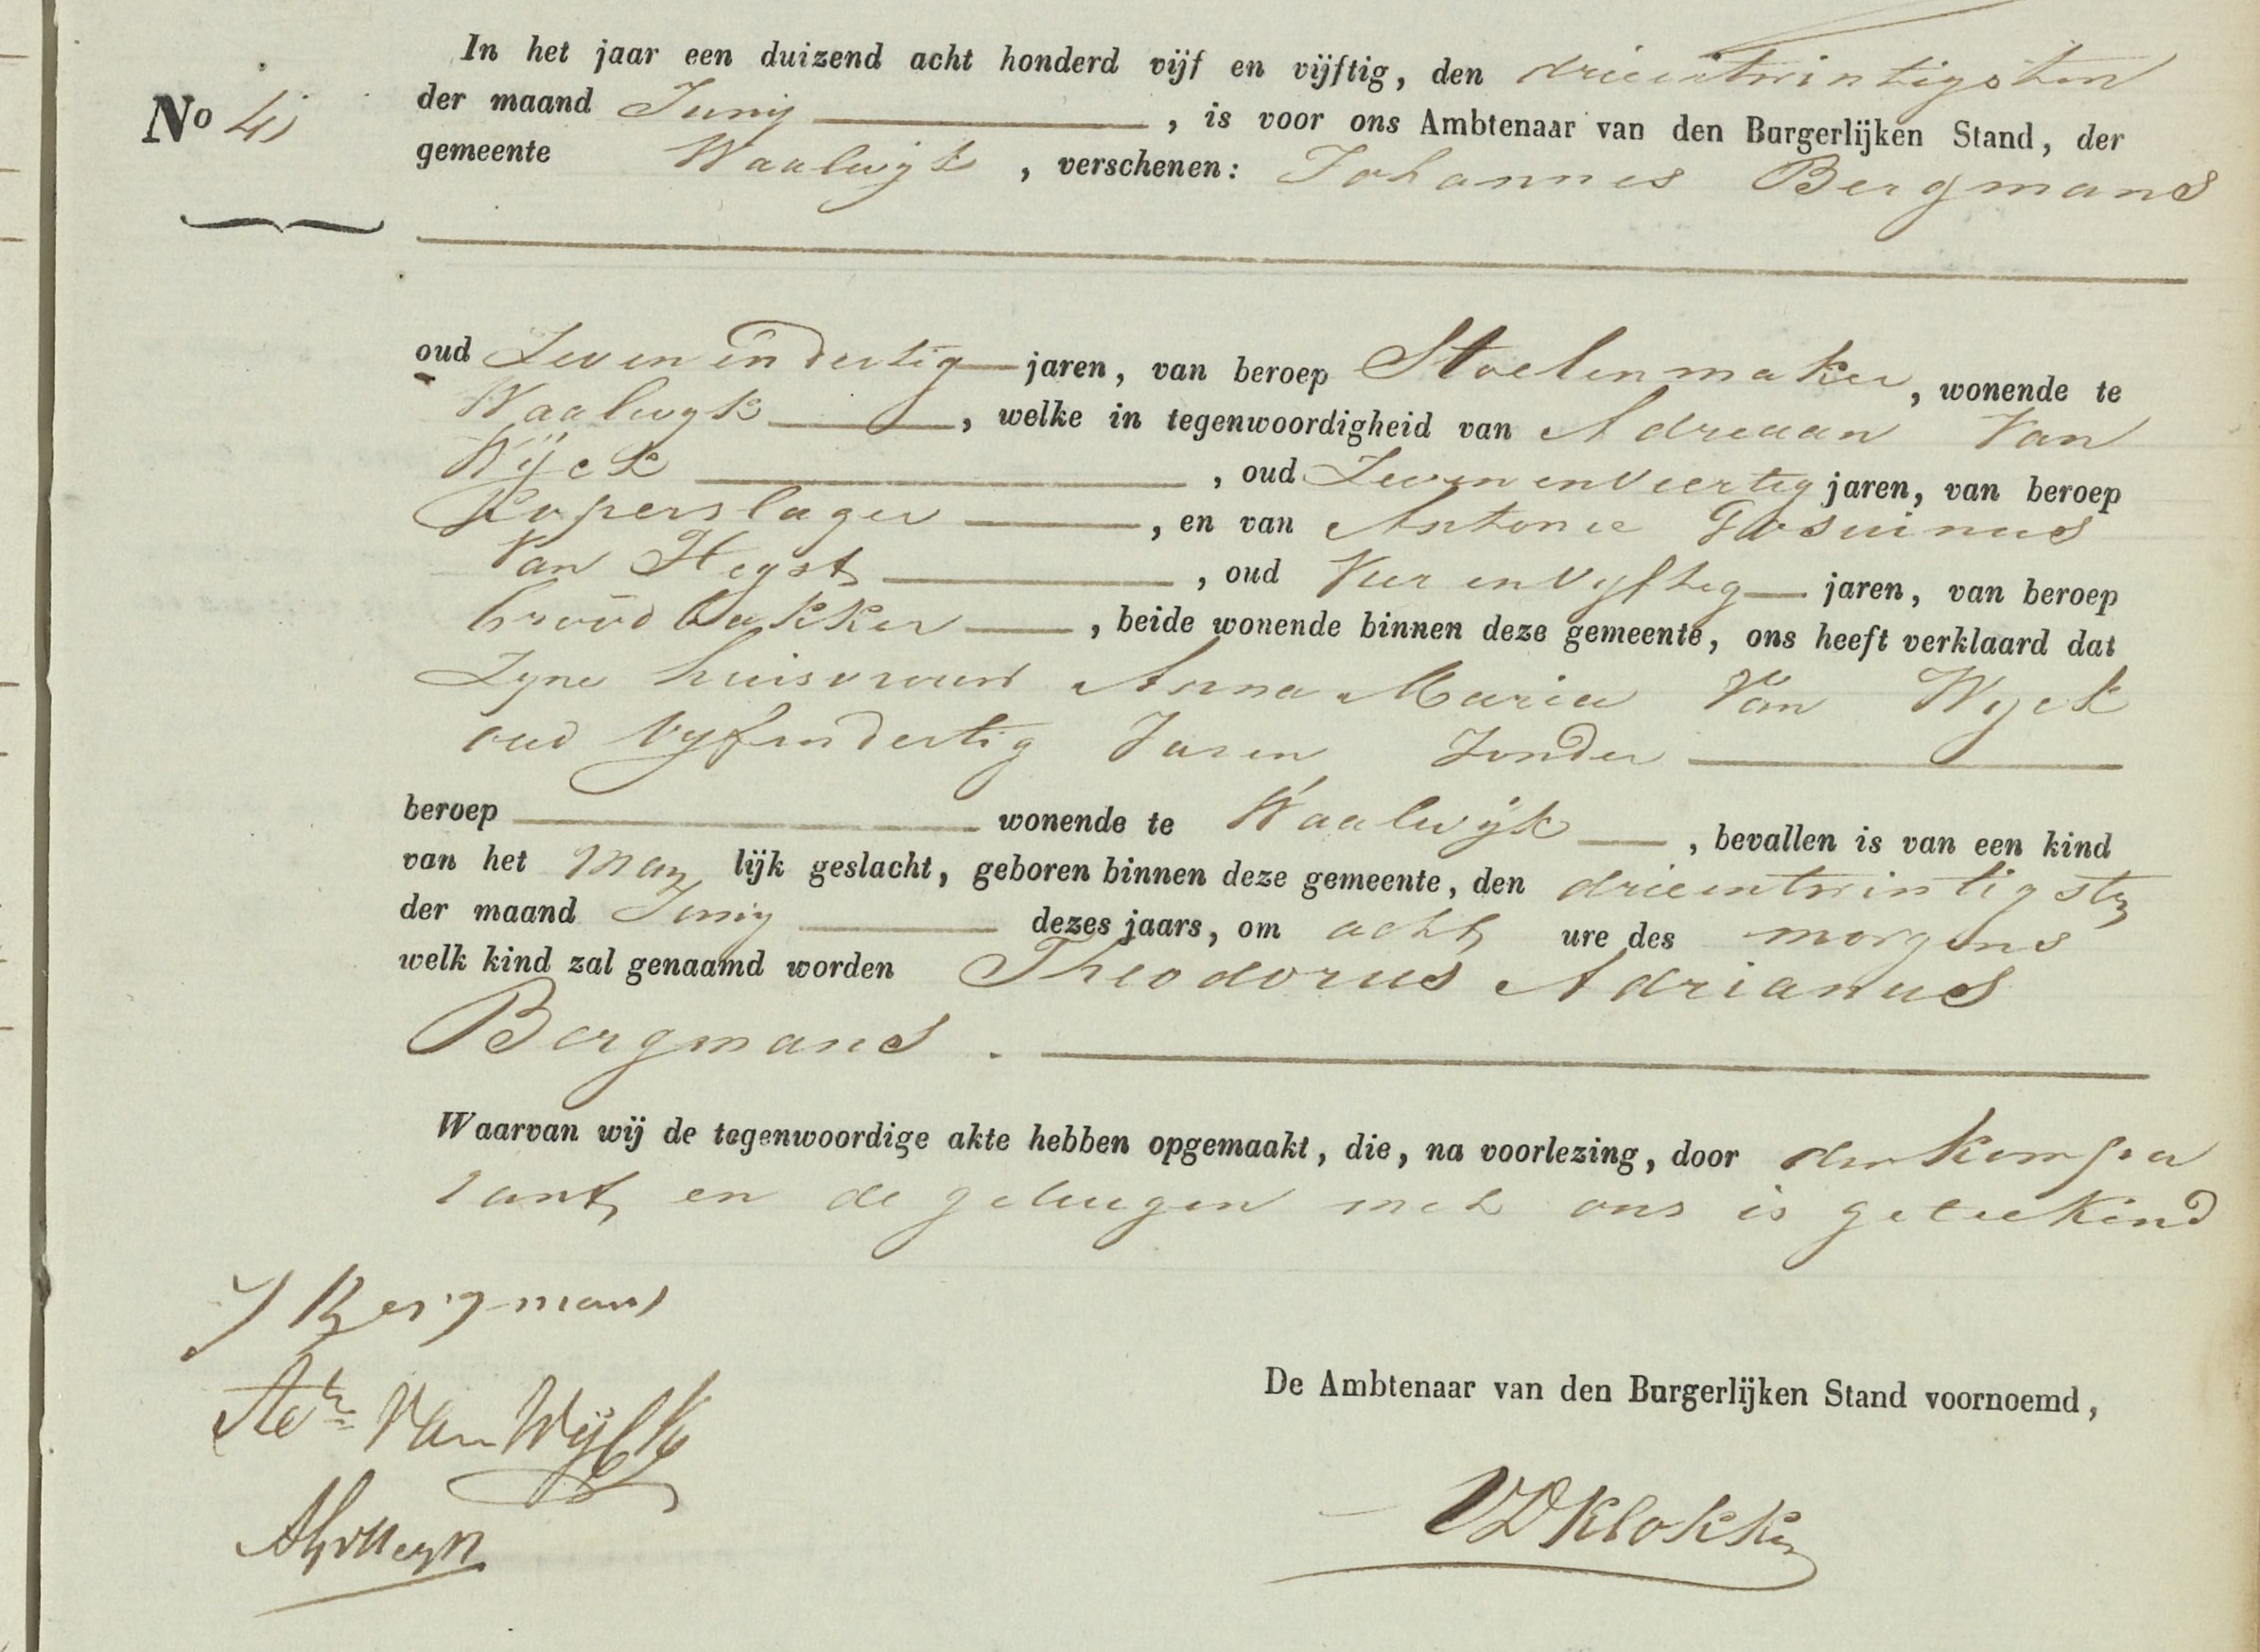 In het jaar een duizend acht honderd vijf en vijftig, den drieentwintigsten
No 41 der maand Junij, is voor ons Ambtenaar van den Burgerlijken Stand, der
gemeente Waalwijk, verschenen: Johannes Bergmans
oud Zeven en dertig jaren, van beroep Stoelenmaker, wonende te
Waalwyk, welke in tegenwoordigheid van Adriaan Van
Wijck, oud Zeven en Veertig jaren, van beroep
Koperslager, en van Antonie Gosuinus
Van Heyst, oud Vier en Vyftig jaren, van beroep
broodbakker, beide wonende binnen deze gemeente, ons heeft verklaard dat
Zyne huisvrouw Anna Maria Van Wyck
oud Vyfendertig Jaren Zonder
beroep wonende te Waalwijk, bevallen is van een kind
van het Man lijk geslacht, geboren binnen deze gemeente, den drieentwintigsten
der maand Junij dezes jaars, om acht ure des morgens
welk kind zal genaamd worden Theodorus Adrianus
Bergmans.
Waarvan wij de tegenwoordige akte hebben opgemaakt, die, na voorlezing, door den Kompa
rant en de getuigen met ons is geteekend
J Bergmans
Adn Van Wijck
De Ambtenaar van den Burgerlijken Stand voornoemd,
VDKlokken